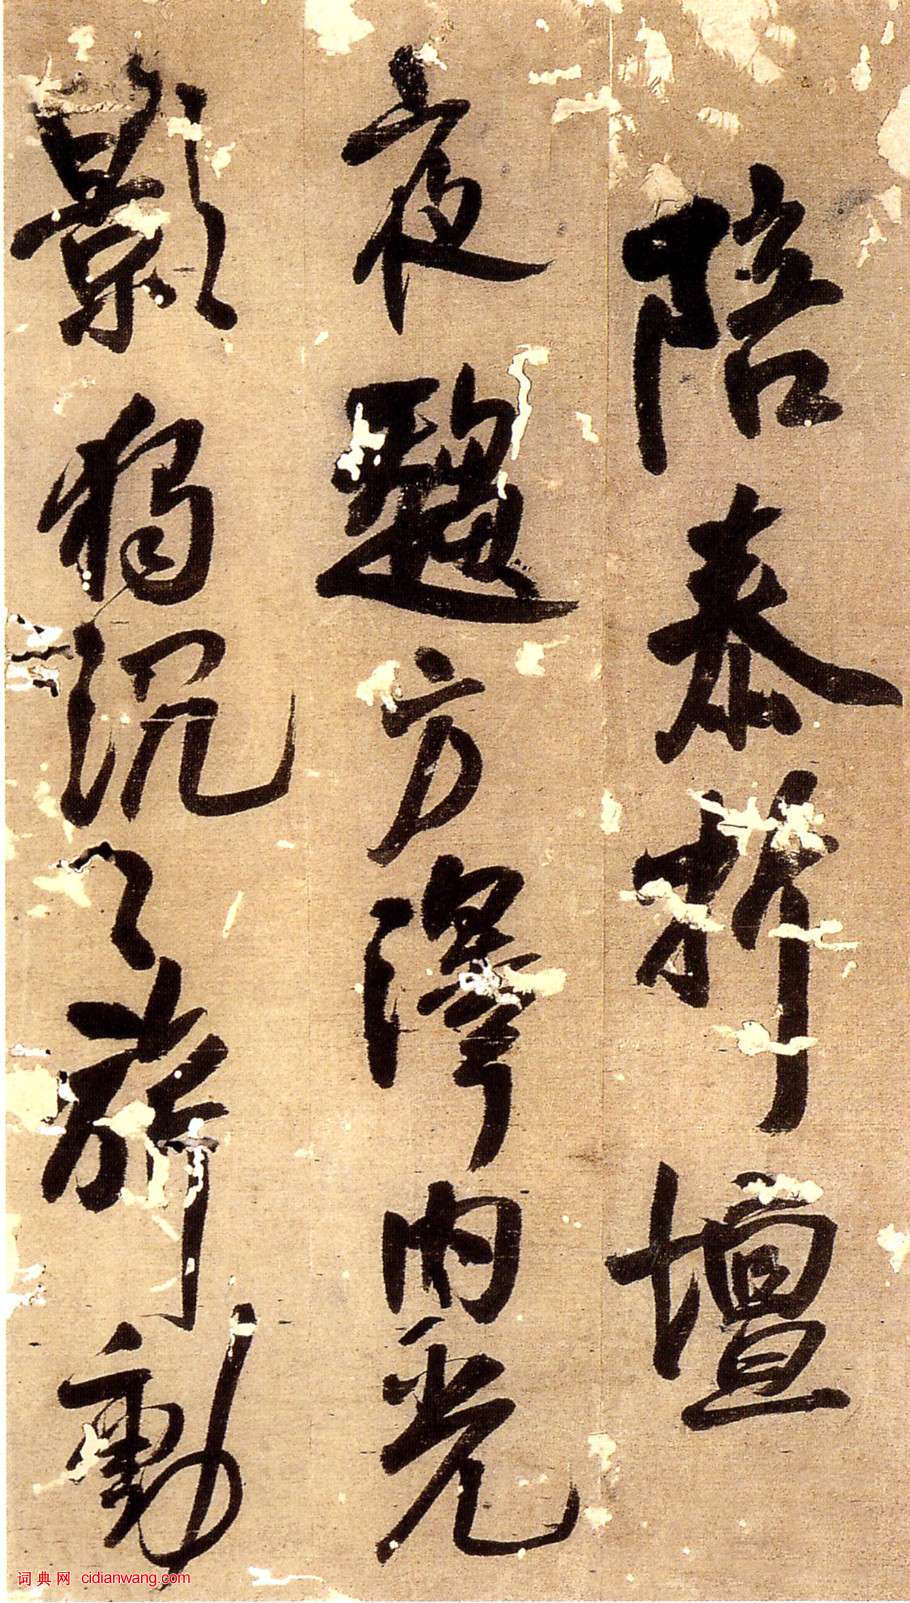 陪泰折壇
夜趨方澤內光
影獨沉〻動
詞典网 cidianwang.com